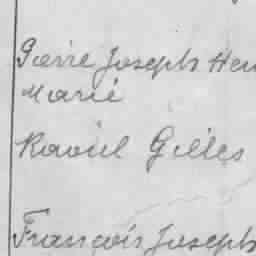 Pierre Joseph Hen
Marie
Raoúl Gilles
François Joseph